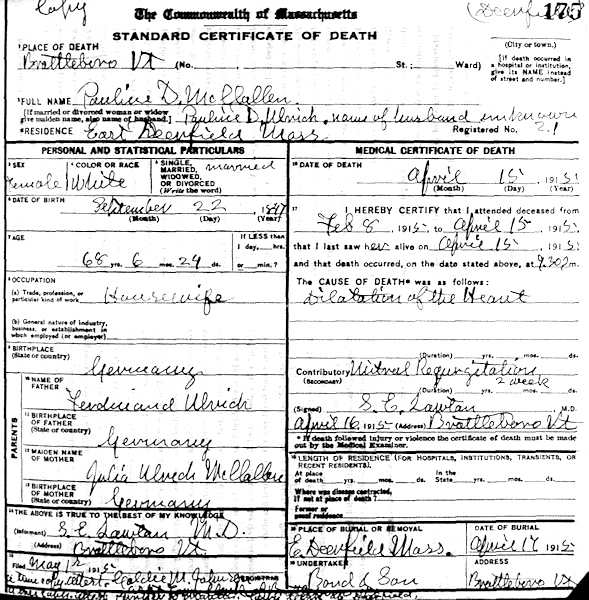 Copy
The Commonwealth of Massachusetts
(Deerfield) 175
STANDARD CERTIFICATE OF DEATH
1 PLACE OF DEATH
(City or town.)
Brattleboro Vt (No. St.; Ward)
[If death occurred in a hospital or institution, give its NAME instead of street and number.]
2 FULL NAME Pauline D. McClallen
[If married or divorced woman or widow give maiden name, also name of husband.] Pauline D. Ulrich, name of husband unknown
RESIDENCE East Deerfield Mass. Registered No. 21
PERSONAL AND STATISTICAL PARTICULARS
3 SEX Female
4 COLOR OR RACE White
5 SINGLE, MARRIED, WIDOWED, OR DIVORCED (Write the word) married
6 DATE OF BIRTH
September 22
(Month) (Day) (Year)
7 AGE
68 yrs. 6 mos. 24 ds.
If LESS than 1 day,....hrs. or....min.?
8 OCCUPATION
(a) Trade, profession, or particular kind of work Housewife
(b) General nature of industry, business, or establishment in which employed (or employer)
9 BIRTHPLACE
(State or country)
Germany
PARENTS
10 NAME OF FATHER
Ferdinand Ulrich
11 BIRTHPLACE OF FATHER
(State or country)
Germany
12 MAIDEN NAME OF MOTHER
Julia Ulrich McClallen
13 BIRTHPLACE OF MOTHER
(State or country)
Germany
14 THE ABOVE IS TRUE TO THE BEST OF MY KNOWLEDGE
(Informant) S. E. Lawton M.D.
(Address) Brattleboro Vt
15 Filed May 1st 1915
REGISTRAR
A true copy attest.
MEDICAL CERTIFICATE OF DEATH
16 DATE OF DEATH
April 15, 1915
(Month) (Day) (Year)
17 I HEREBY CERTIFY that I attended deceased from
Feb 8 1915, to April 15, 1915
that I last saw her alive on April 15, 1915
and that death occurred, on the date stated above, at 9.30 m.
The CAUSE OF DEATH* was as follows:
Dilatation of the Heart
(Duration) yrs. mos. ds.
Contributory (SECONDARY) Mitral Regurgitation
2 week
(Duration) yrs. mos. ds.
(Signed) S. E. Lawton M.D.
April 16, 1915 (Address) Brattleboro Vt
* If death followed injury or violence the certificate of death must be made out by the Medical Examiner.
18 LENGTH OF RESIDENCE (FOR HOSPITALS, INSTITUTIONS, TRANSIENTS, OR RECENT RESIDENTS).
At place of death yrs. mos. ds. In the State yrs. mos. ds.
Where was disease contracted, if not at place of death?
Former or usual residence
19 PLACE OF BURIAL OR REMOVAL
E. Deerfield Mass.
DATE OF BURIAL
April 17 1915
20 UNDERTAKER
Bond & Son
ADDRESS
Brattleboro Vt